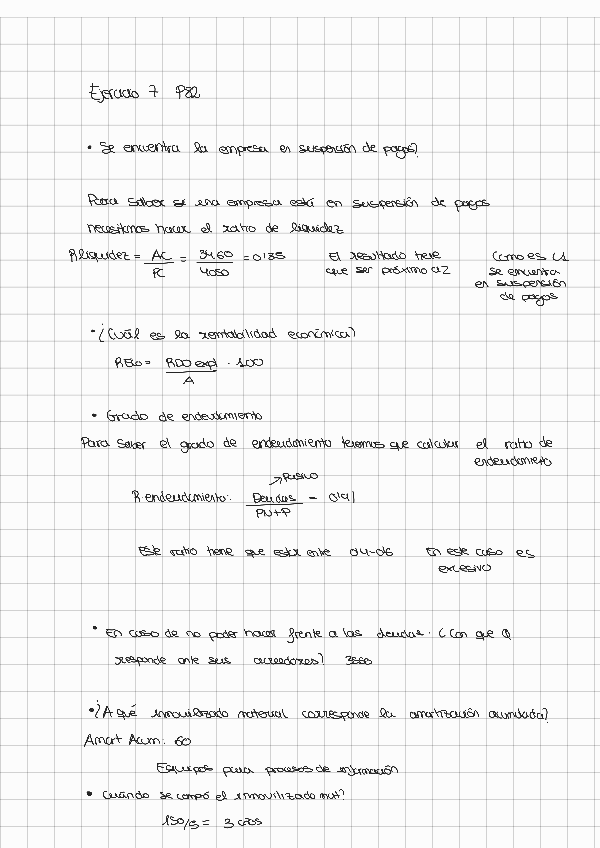 Ejercicio 7 P82
• Se encuentra la empresa en suspensión de pagos?
Para saber si una empresa está en suspensión de pagos
necesitamos hacer el ratio de liquidez
R liquidez = AC / PC = 3460 / 4050 = 0'85 El resultado tiene que ser próximo a 2 Como es <1 se encuentra en suspensión de pagos
• ¿Cuál es la rentabilidad económica?
REco = RDO expl / A · 100
• Grado de endeudamiento
Para saber el grado de endeudamiento tenemos que calcular el ratio de
endeudamiento
→ Pasivo
R. endeudamiento: Deudas / PN+P = 0'91
Este ratio tiene que estar entre 0'4-0'6 En este caso es
excesivo
• En caso de no poder hacer frente a las deudas. ¿Con que Q
responde ante sus acreedores?
• ¿A qué inmovilizado material corresponde la amortización acumulada?
Amort Acum: 60
Equipos para procesos de información
• Cuándo se compó el inmovilizado mat?
150/3 = 3 años